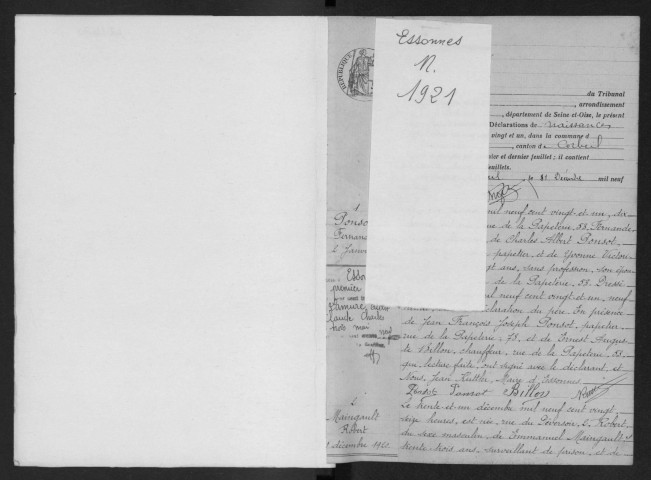 Essonnes
N.
1921
REPUBLIQUE
du Tribunal
, arrondissement
, département de Seine-et-Oise, le présent
Déclarations de naissances
vingt et un, dans la commune d
, canton de Corbeil
ier et dernier feuillet; il contient
feuillets.
, le 31 Décembre mil neuf
1
Ponsot
Fernande
2 Janvier
mil neuf cent vingt et un, dix
rue de la Papeterie 58. Fernande
de Charles Albert Ponsot
papetier, et de Yvonne Victori
gt ans, sans profession, son épou
de la Papeterie, 58. Dressé
mil neuf cent vingt et un, neuf
déclaration du père. En présence
de Jean François Joseph Ponsot, papetier
rue de la Papeterie, 78, et de Ernest August
Billon, chauffeur, rue de la Papeterie, 58
qui, lecture faite, ont signé avec le déclarant, et
Nous, Jean Maire d'Essonnes
Ponsot Ponsot Billon
premier
trois mai
2
Maingault
Robert
31 décembre 1920
Le trente et un décembre mil neuf cent vingt
dix heures, est né, rue du Déversoir, 2, Robert
du sexe masculin, de Emmanuel Maingault
trente trois ans, surveillant de prison, et de